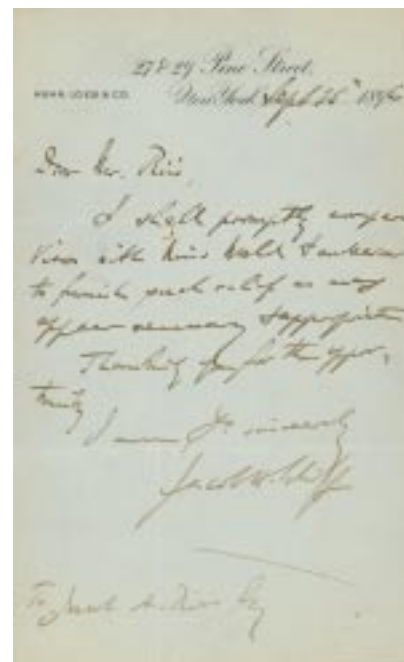 27 & 29 Pine Street,
KUHN, LOEB & CO.
New York, Sept 26th 1896
Dear Mr. Riis,
I shall promptly
View with Miss Wald &
to furnish such relief as may
appear necessary & appropriate
Thanking you for the oppor-
tunity
I am, Yrs sincerely
Jacob H. Schiff
To Jacob A. Riis Esq